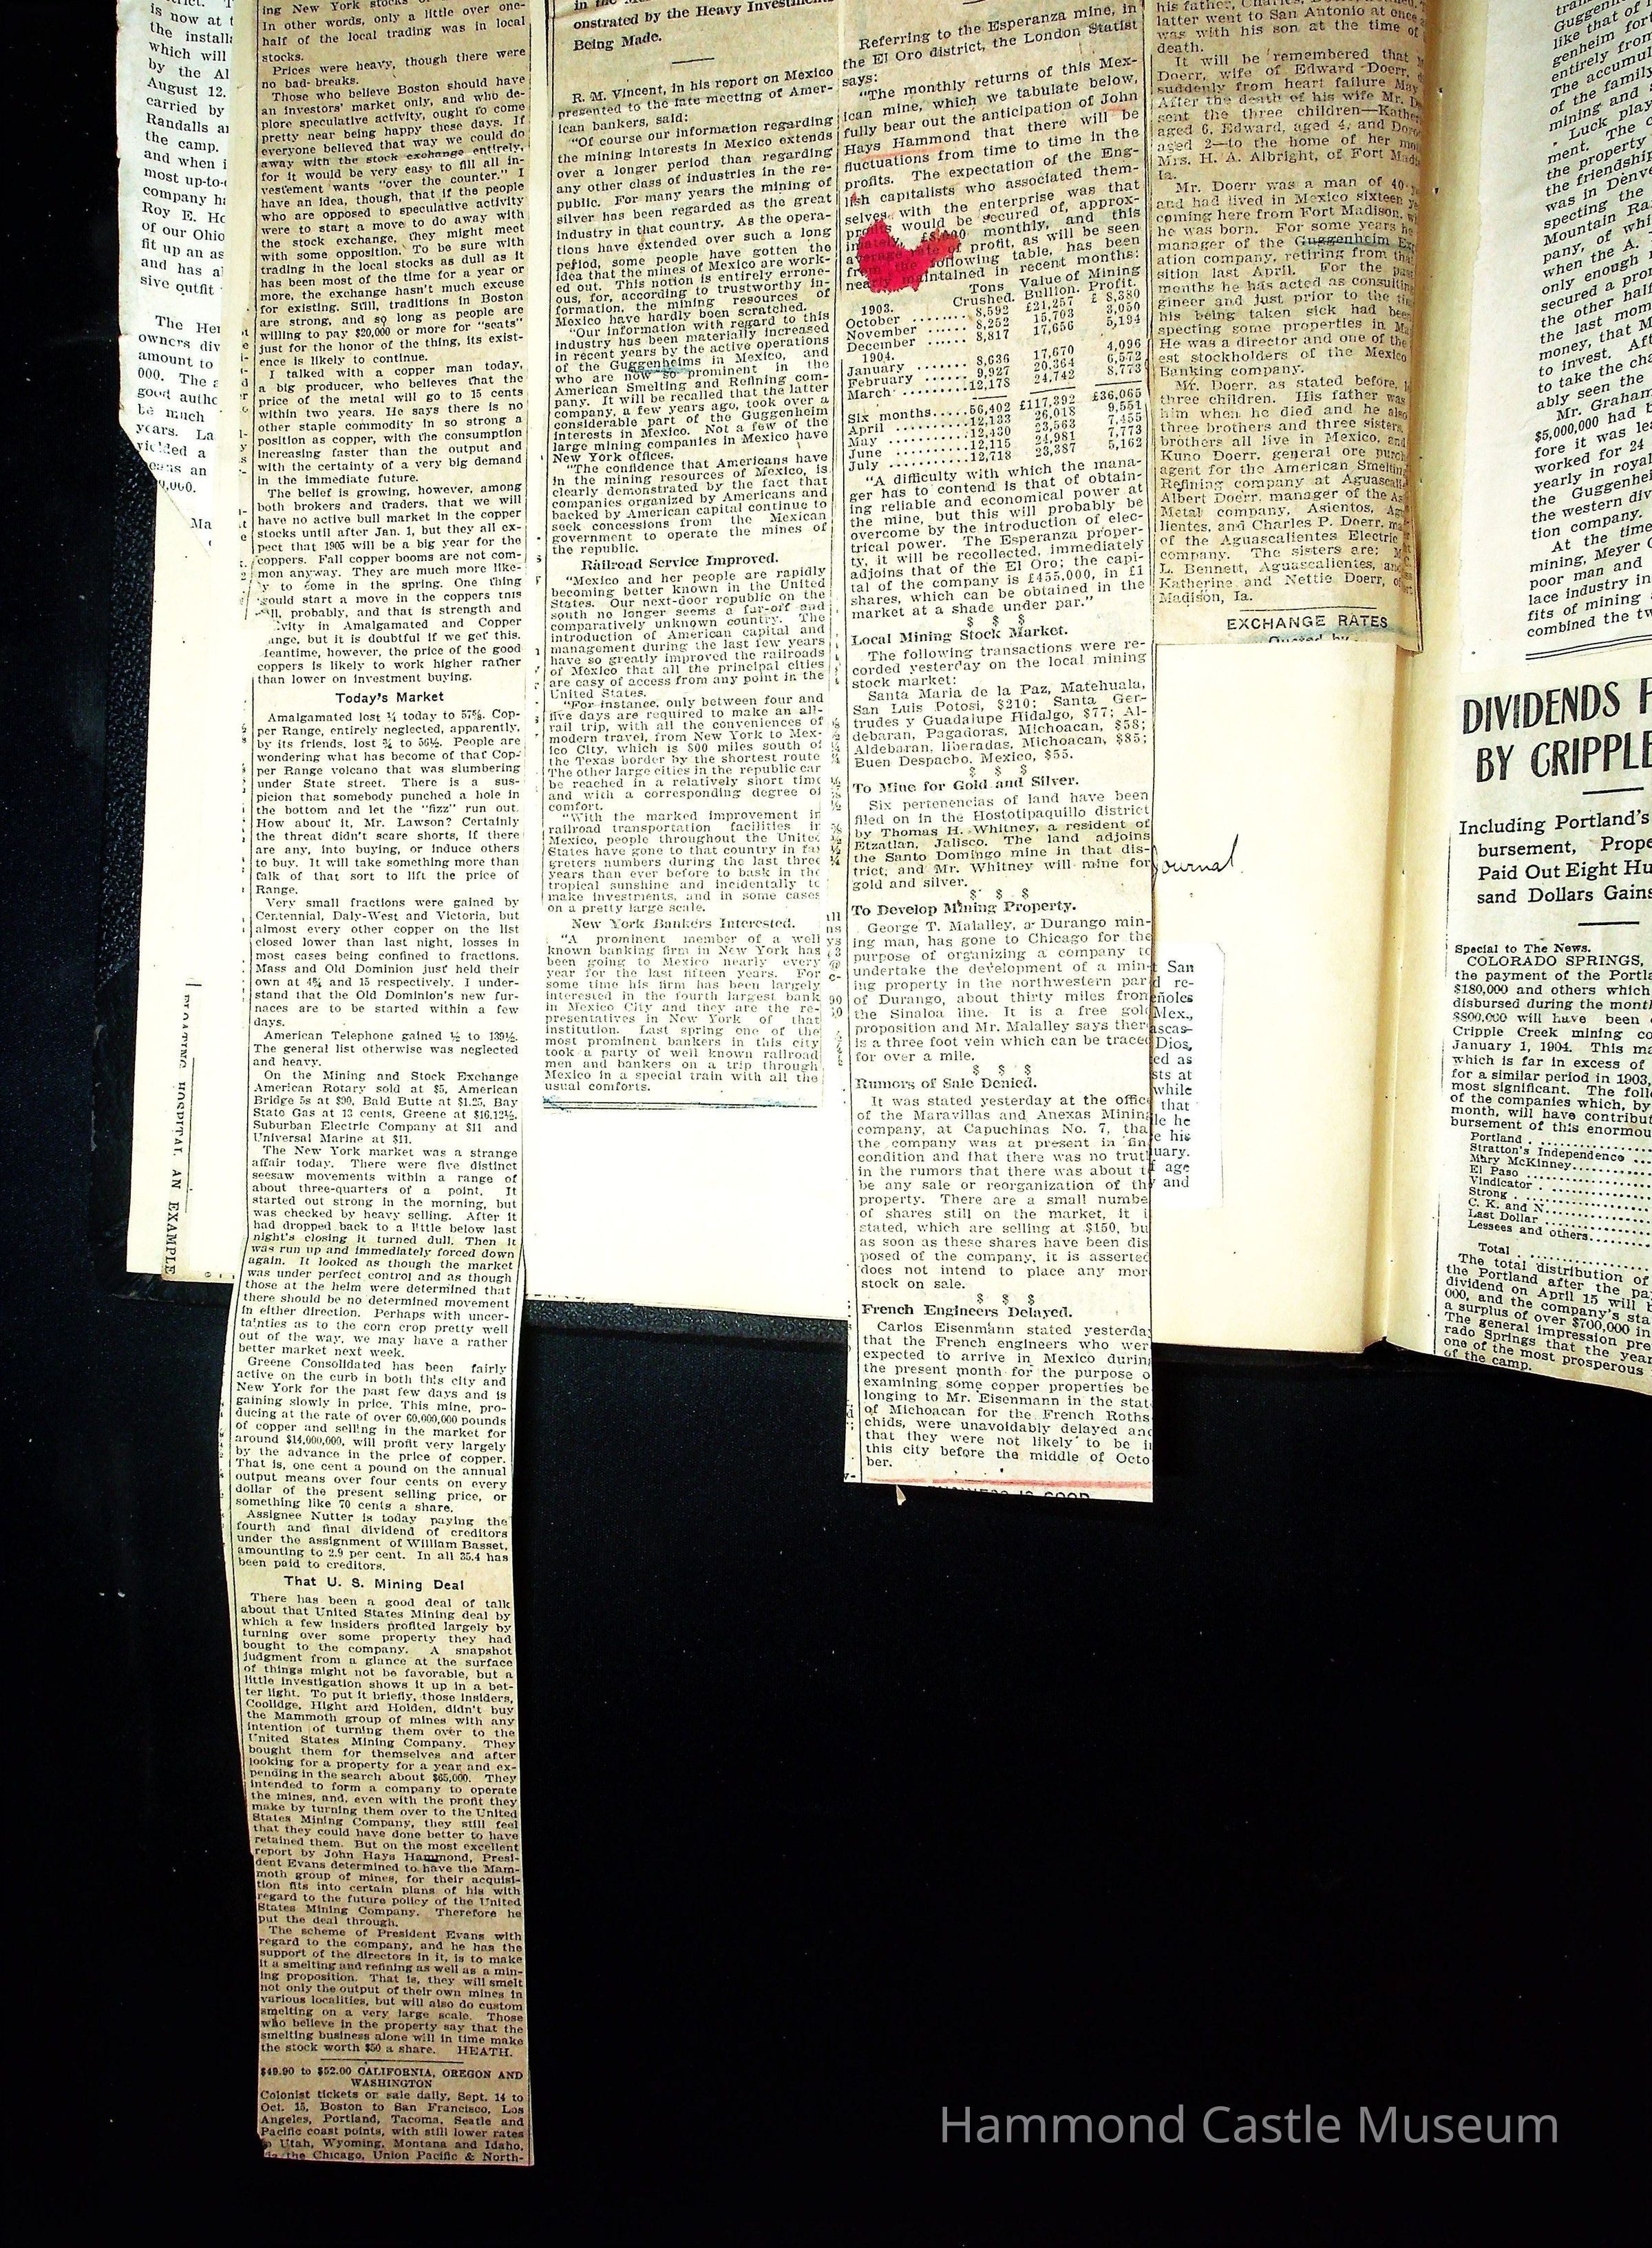 ing New York stocks
In other words, only a little over one-
half of the local trading was in local
stocks.
Prices were heavy, though there were
no bad breaks.
Those who believe Boston should have
an investors' market only, and who de-
plore speculative activity, ought to come
pretty near being happy these days. If
everyone believed that way we could do
away with the stock exchange entirely,
for it would be very easy to fill all in-
vestement wants "over the counter." I
have an idea, though, that if the people
who are opposed to speculative activity
were to start a move to do away with
the stock exchange, they might meet
with some opposition. To be sure with
trading in the local stocks as dull as it
has been most of the time for a year or
more, the exchange hasn't much excuse
for existing. Still, traditions in Boston
are strong, and so long as people are
willing to pay $20,000 or more for "seats"
just for the honor of the thing, its exist-
ence is likely to continue.
I talked with a copper man today,
a big producer, who believes that the
price of the metal will go to 15 cents
within two years. He says there is no
other staple commodity in so strong a
position as copper, with the consumption
increasing faster than the output and
with the certainty of a very big demand
in the immediate future.
The belief is growing, however, among
both brokers and traders, that we will
have no active bull market in the copper
stocks until after Jan. 1, but they all ex-
pect that 1905 will be a big year for the
coppers. Fall copper booms are not com-
mon anyway. They are much more like-
ly to come in the spring. One thing
could start a move in the coppers this
probably, and that is strength and
in Amalgamated and Copper
ange, but it is doubtful if we get this.
Meantime, however, the price of the good
coppers is likely to work higher rather
than lower on investment buying.
Today's Market
Amalgamated lost ¼ today to 57⅝. Cop-
per Range, entirely neglected, apparently,
by its friends, lost ¾ to 56½. People are
wondering what has become of that Cop-
per Range volcano that was slumbering
under State street. There is a sus-
picion that somebody punched a hole in
the bottom and let the "fizz" run out.
How about it, Mr. Lawson? Certainly
the threat didn't scare shorts, if there
are any, into buying, or induce others
to buy. It will take something more than
talk of that sort to lift the price of
Range.
Very small fractions were gained by
Centennial, Daly-West and Victoria, but
almost every other copper on the list
closed lower than last night, losses in
most cases being confined to fractions.
Mass and Old Dominion just held their
own at 4¾ and 15 respectively. I under-
stand that the Old Dominion's new fur-
naces are to be started within a few
days.
American Telephone gained ½ to 139½.
The general list otherwise was neglected
and heavy.
On the Mining and Stock Exchange
American Rotary sold at $5, American
Bridge 5s at $90, Bald Butte at $1.25, Bay
State Gas at 13 cents, Greene at $16.12½,
Suburban Electric Company at $11 and
Universal Marine at $11.
The New York market was a strange
affair today. There were five distinct
seesaw movements within a range of
about three-quarters of a point. It
started out strong in the morning, but
was checked by heavy selling. After it
had dropped back to a little below last
night's closing it turned dull. Then it
was run up and immediately forced down
again. It looked as though the market
was under perfect control and as though
those at the helm were determined that
there should be no determined movement
in either direction. Perhaps with uncer-
tainties as to the corn crop pretty well
out of the way, we may have a rather
better market next week.
Greene Consolidated has been fairly
active on the curb in both this city and
New York for the past few days and is
gaining slowly in price. This mine, pro-
ducing at the rate of over 60,000,000 pounds
of copper and selling in the market for
around $14,000,000, will profit very largely
by the advance in the price of copper.
That is, one cent a pound on the annual
output means over four cents on every
dollar of the present selling price, or
something like 70 cents a share.
Assignee Nutter is today paying the
fourth and final dividend of creditors
under the assignment of William Basset,
amounting to 2.9 per cent. In all 35.4 has
been paid to creditors.
That U. S. Mining Deal
There has been a good deal of talk
about that United States Mining deal by
which a few insiders profited largely by
turning over some property they had
bought to the company. A snapshot
judgment from a glance at the surface
of things might not be favorable, but a
little investigation shows it up in a bet-
ter light. To put it briefly, those insiders,
Coolidge, Hight and Holden, didn't buy
the Mammoth group of mines with any
intention of turning them over to the
United States Mining Company. They
bought them for themselves and after
looking for a property for a year and ex-
pending in the search about $65,000. They
intended to form a company to operate
the mines, and, even with the profit they
make by turning them over to the United
States Mining Company, they still feel
that they could have done better to have
retained them. But on the most excellent
report by John Hays Hammond, Presi-
dent Evans determined to have the Mam-
moth group of mines, for their acquisi-
tion fits into certain plans of his with
regard to the future policy of the United
States Mining Company. Therefore he
put the deal through.
The scheme of President Evans with
regard to the company, and he has the
support of the directors in it, is to make
it a smelting and refining as well as a min-
ing proposition. That is, they will smelt
not only the output of their own mines in
various localities, but will also do custom
smelting on a very large scale. Those
who believe in the property say that the
smelting business alone will in time make
the stock worth $50 a share. HEATH.
$49.90 to $52.00 CALIFORNIA, OREGON AND
WASHINGTON
Colonist tickets or sale daily, Sept. 14 to
Oct. 15, Boston to San Francisco, Los
Angeles, Portland, Tacoma, Seatle and
Pacific coast points, with still lower rates
Utah, Wyoming, Montana and Idaho,
the Chicago, Union Pacific & North-
onstrated by the Heavy Investments
Being Made.
R. M. Vincent, in his report on Mexico
presented to the late meeting of Amer-
ican bankers, said:
"Of course our information regarding
the mining interests in Mexico extends
over a longer period than regarding
any other class of industries in the re-
public. For many years the mining of
silver has been regarded as the great
industry in that country. As the opera-
tions have extended over such a long
period, some people have gotten the
idea that the mines of Mexico are work-
ed out. This notion is entirely errone-
ous, for, according to trustworthy in-
formation, the mining resources of
Mexico have hardly been scratched.
"Our information with regard to this
industry has been materially increased
in recent years by the active operations
of the Guggenheims in Mexico, and
who are now so prominent in the
American Smelting and Refining com-
pany. It will be recalled that the latter
company, a few years ago, took over a
considerable part of the Guggenheim
interests in Mexico. Not a few of the
large mining companies in Mexico have
New York offices.
"The confidence that Americans have
in the mining resources of Mexico, is
clearly demonstrated by the fact that
companies organized by Americans and
backed by American capital continue to
seek concessions from the Mexican
government to operate the mines of
the republic.
Railroad Service Improved.
"Mexico and her people are rapidly
becoming better known in the United
States. Our next-door republic on the
south no longer seems a far-off and
comparatively unknown country. The
introduction of American capital and
management during the last few years
have so greatly improved the railroads
of Mexico that all the principal cities
are easy of access from any point in the
United States.
"For instance, only between four and
five days are required to make an all-
rail trip, with all the conveniences of
modern travel, from New York to Mex-
ico City, which is 800 miles south of
the Texas border by the shortest route
The other large cities in the republic can
be reached in a relatively short time
and with a corresponding degree of
comfort.
"With the marked improvement in
railroad transportation facilities in
Mexico, people throughout the United
States have gone to that country in far
greters numbers during the last three
years than ever before to bask in the
tropical sunshine and incidentally to
make investments, and in some cases
on a pretty large scale.
New York Bankers Interested.
"A prominent member of a well
known banking firm in New York has
been going to Mexico nearly every
year for the last fifteen years. For
some time his firm has been largely
interested in the fourth largest bank
in Mexico City and they are the re-
presentatives in New York of that
institution. Last spring one of the
most prominent bankers in this city
took a party of well known railroad
men and bankers on a trip through
Mexico in a special train with all the
usual comforts.
Referring to the Esperanza mine, in
the El Oro district, the London Statist
says:
"The monthly returns of this Mex-
ican mine, which we tabulate below,
fully bear out the anticipation of John
Hays Hammond that there will be
fluctuations from time to time in the
profits. The expectation of the Eng-
lish capitalists who associated them-
selves with the enterprise was that
profits would be secured of, approx-
imately, £8,000 monthly, and this
average rate of profit, as will be seen
from the following table, has been
nearly maintained in recent months:
Tons Value of Mining
Crushed. Bullion. Profit.
1903.
October ........ 8,592 £21,257 £ 8,380
November ...... 8,252 15,703 3,050
December ...... 8,817 17,656 5,194
1904.
January ....... 8,636 17,670 4,096
February ...... 9,927 20,364 6,572
March ........ 12,178 24,742 8,773
Six months..... 56,402 £117,392 £36,065
April .......... 12,133 26,018 9,551
May ........... 12,430 23,563 7,455
June .......... 12,115 24,981 7,773
July ........... 12,718 23,387 5,162
"A difficulty with which the mana-
ger has to contend is that of obtain-
ing reliable and economical power at
the mine, but this will probably be
overcome by the introduction of elec-
trical power. The Esperanza proper-
ty, it will be recollected, immediately
adjoins that of the El Oro; the capi-
tal of the company is £455,000, in £1
shares, which can be obtained in the
market at a shade under par."
$ $ $
Local Mining Stock Market.
The following transactions were re-
corded yesterday on the local mining
stock market:
Santa Maria de la Paz, Matehuala,
San Luis Potosi, $210; Santa Ger-
trudes y Guadalupe Hidalgo, $77; Al-
debaran, Pagadoras, Michoacan, $58;
Aldebaran, liberadas, Michoacan, $85;
Buen Despacho, Mexico, $55.
$ $ $
To Mine for Gold and Silver.
Six pertenencias of land have been
filed on in the Hostotipaquillo district
by Thomas H. Whitney, a resident of
Etzatlan, Jalisco. The land adjoins
the Santo Domingo mine in that dis-
trict, and Mr. Whitney will mine for
gold and silver.
$ $ $
To Develop Mining Property.
George T. Malalley, a Durango min-
ing man, has gone to Chicago for the
purpose of organizing a company to
undertake the development of a min-
ing property in the northwestern par
of Durango, about thirty miles from
the Sinaloa line. It is a free gold
proposition and Mr. Malalley says there
is a three foot vein which can be traced
for over a mile.
$ $ $
Rumors of Sale Denied.
It was stated yesterday at the office
of the Maravillas and Anexas Mining
company, at Capuchinas No. 7, tha
the company was at present in fin
condition and that there was no truth
in the rumors that there was about t
be any sale or reorganization of th
property. There are a small numbe
of shares still on the market, it i
stated, which are selling at $150, bu
as soon as these shares have been dis
posed of the company, it is asserted
does not intend to place any mor
stock on sale.
$ $ $
French Engineers Delayed.
Carlos Eisenmann stated yesterda
that the French engineers who wer
expected to arrive in Mexico durin
the present month for the purpose o
examining some copper properties be
longing to Mr. Eisenmann in the stat
of Michoacan for the French Roths
childs, were unavoidably delayed and
that they were not likely to be i
this city before the middle of Octo
ber.
his father, Charles
latter went to San Antonio at once
was with his son at the time of
death.
It will be remembered that
Doerr, wife of Edward Doerr,
suddenly from heart failure May
After the death of his wife Mr. D
sent the three children—Kathe
aged 6, Edward, aged 4, and Doro
aged 2—to the home of her mo
Mrs. H. A. Albright, of Fort Madis
Ia.
Mr. Doerr was a man of 40
and had lived in Mexico sixteen ye
coming here from Fort Madison, w
he was born. For some years he
manager of the Guggenheim Ex
ation company, retiring from that
sition last April. For the past
months he has acted as consulting
gineer and just prior to the tim
his being taken sick had been
specting some properties in
He was a director and one of the
est stockholders of the Mexico
Banking company.
Mr. Doerr, as stated before,
three children. His father was
him when he died and he also
three brothers and three sisters
brothers all live in Mexico, and
Kuno Doerr, general ore purch
agent for the American Smelting
Refining company at Aguascali
Albert Doerr, manager of the As
Metal company, Asientos, Agu
lientes, and Charles P. Doerr, ma
of the Aguascalientes Electric
company. The sisters are: M
L. Bennett, Aguascalientes, and
Katherine and Nettie Doerr, of
Madison, Ia.
EXCHANGE RATES
Journal
FLOATING HOSPITAL AN EXAMPLE
DIVIDENDS
BY CRIPPLE
Including Portland's
bursement, Prope
Paid Out Eight Hu
sand Dollars Gains
Special to The News.
COLORADO SPRINGS,
the payment of the Portla
$180,000 and others which
disbursed during the month
$800,000 will have been
Cripple Creek mining co
January 1, 1904. This ma
which is far in excess of
for a similar period in 1903,
most significant. The foll
of the companies which, by
month, will have contribut
bursement of this enormou
Portland
Stratton's Independence
Mary McKinney
El Paso
Vindicator
Strong
C. K. and N
Last Dollar
Lessees and others
Total
The total distribution of
the Portland after the pa
dividend on April 15 will b
000, and the company's sta
a surplus of over $700,000 in
The general impression pre
rado Springs that the year
one of the most prosperous
of the camp.
Hammond Castle Museum